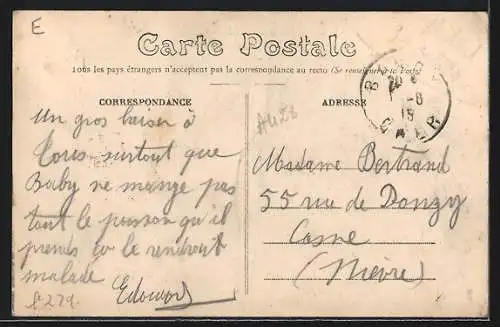 E
Carte Postale
Tous les pays étrangers n'acceptent pas la correspondance au recto (Se renseigner à la Poste)
CORRESPONDANCE
ADRESSE
Un gros baiser à
Tous surtout que
Baby ne mange pas
tout le poisson qu'il
prends ça le rendrait
malade
Edouard
Madame Bertrand
55 rue de Donzy
Cosne
(Nièvre)